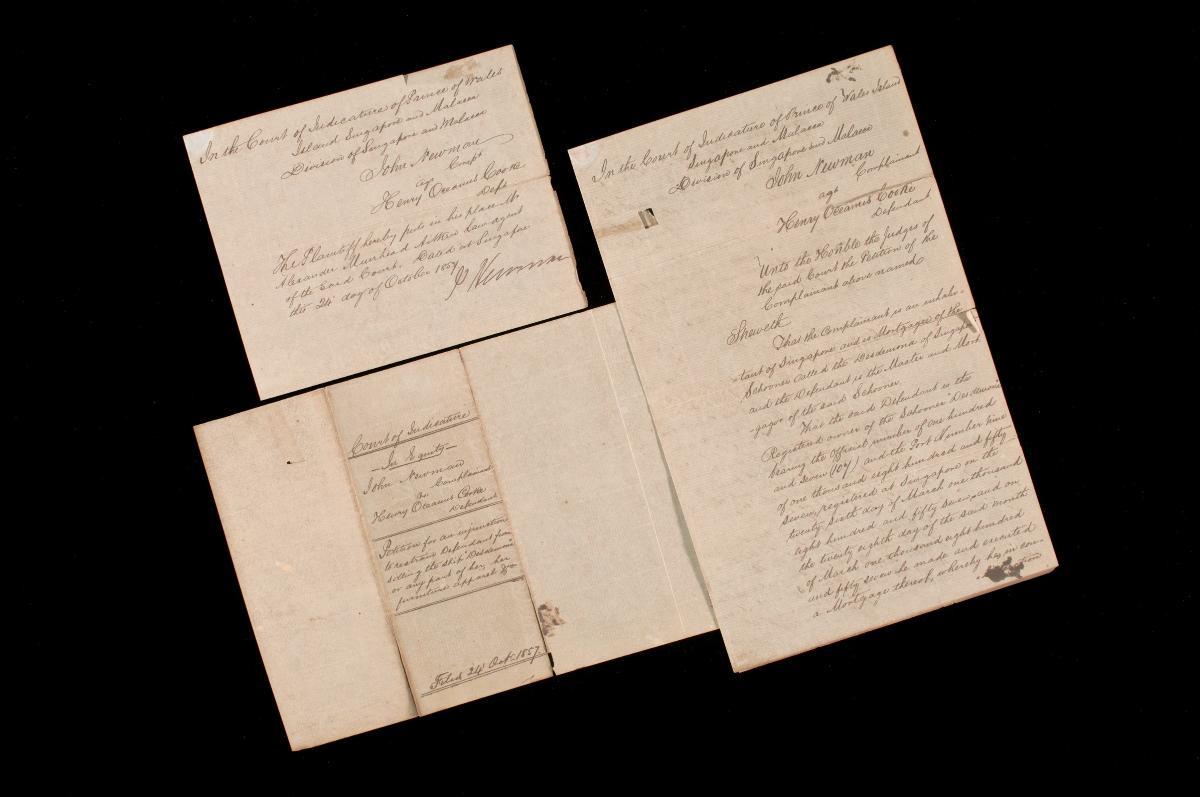 In the Court of Judicature of Prince of Wales
Island Singapore and Malacca
Division of Singapore and Malacca
John Newman
agt Compt
Henry Oceanus Cooke
Deft
The Plaintiff hereby puts in his place Mr
Alexander Muirhead Aitken Law agent
of the said Court. Dated at Singapore
this 24 day of October 1857
J Newman
In the Court of Judicature of Prince of Wales Island
Singapore and Malacca
Division of Singapore and Malacca
John Newman
agt Complainant
Henry Oceanus Cooke
Defendant
Unto the Honble the Judges of
the said Court the Petition of the
Complainant above named
Sheweth
That the Complainant is an inhabi-
-tant of Singapore and is Mortgagee of the
Schooner called the Desdemona of Singapore
and the Defendant is the Master and Mort
-gagor of the said Schooner
That the said Defendant is the
Registered owner of the Schooner "Desdemona"
bearing the Official number of one hundred
and seven (107) and the Port Number nine
of one thousand eight hundred and fifty
seven, registered at Singapore on the
twenty sixth day of March one thousand
eight hundred and fifty seven, and on
the twenty eighth day of the said month
of March one thousand eight hundred
and fifty seven he made and executed
a Mortgage thereof, whereby he, in con-
Court of Judicature
In Equity
John Newman
Complainant
Henry Oceanus Cooke
Defendant
Petition for an injunction
to restrain Defendant from
selling the ship Desdemona
or any part of her, her
furniture apparel &c
Filed 24 Oct. 1857